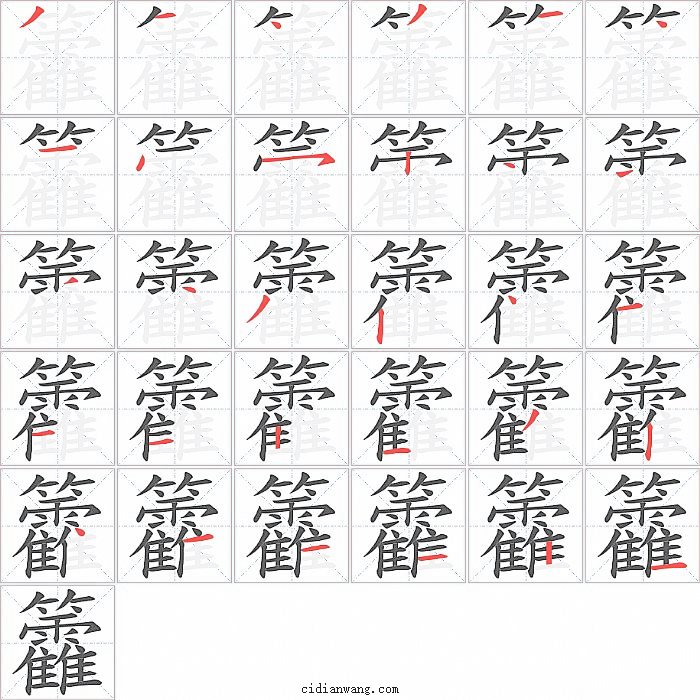 籱
cidianwang.com